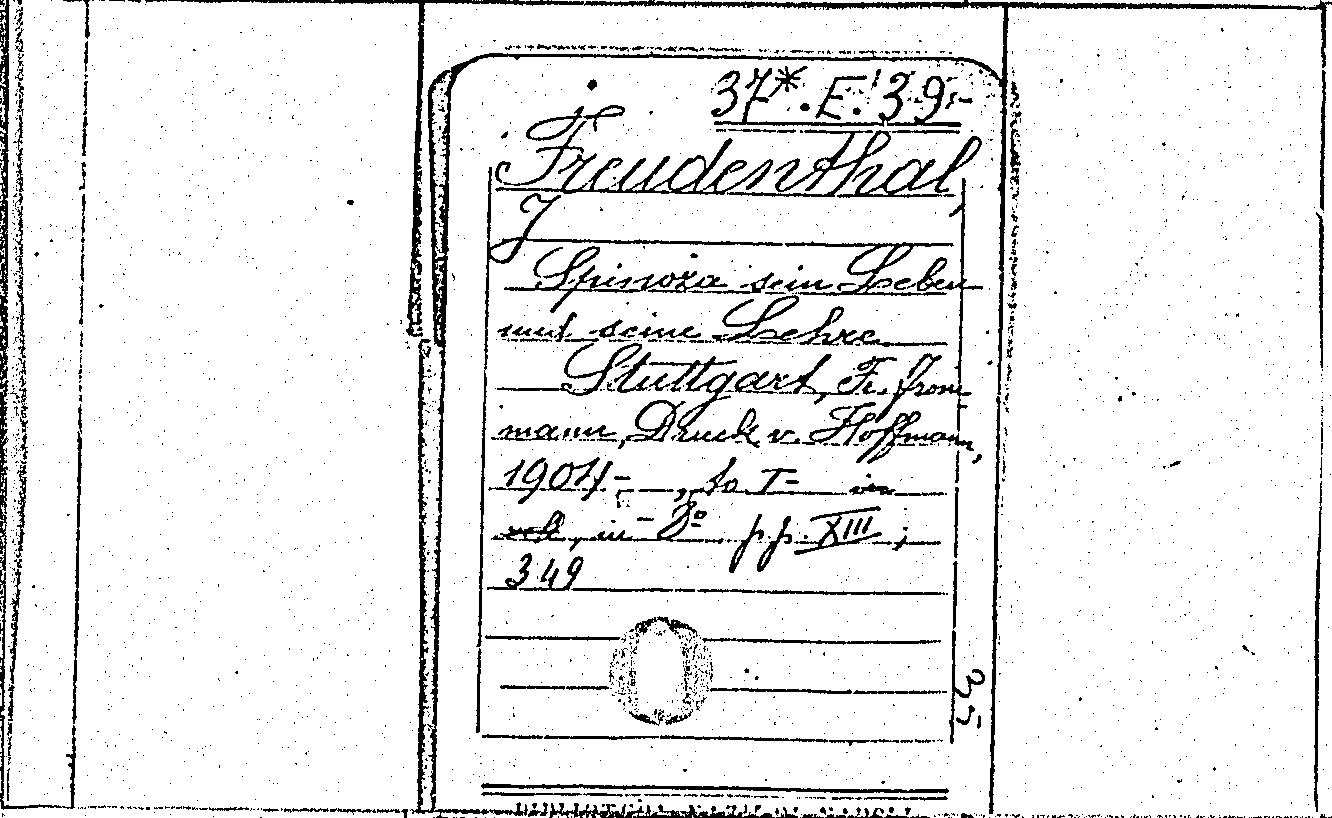 37*. E. 39.-
Freudenthal,
J
Spinoza sein Leben
und seine Lehre
Stuttgart, Fr. From-
mann, Druck v. Hoffmann,
1904-, to I- in
in-8º pp. XIII;
349
35